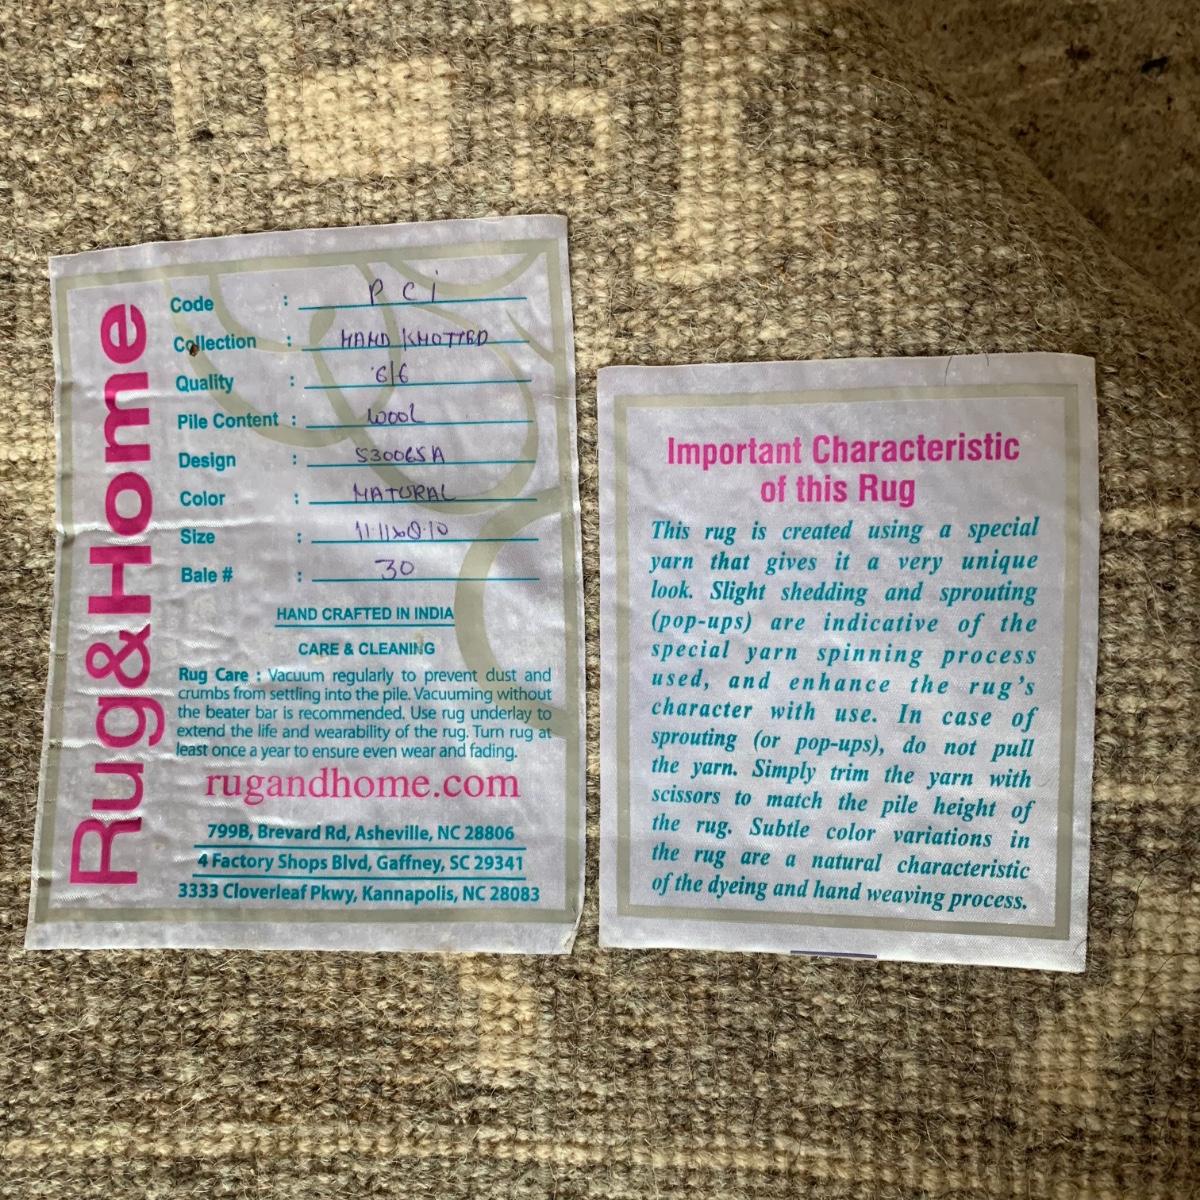 Rug&Home
Code : P C i
Collection : HAND KNOTTED
Quality : 6/6
Pile Content : WOOL
Design : S3006SA
Color : NATURAL
Size : 11.11x8.10
Bale # : 30
HAND CRAFTED IN INDIA
CARE & CLEANING
Rug Care : Vacuum regularly to prevent dust and
crumbs from settling into the pile. Vacuuming without
the beater bar is recommended. Use rug underlay to
extend the life and wearability of the rug. Turn rug at
least once a year to ensure even wear and fading.
rugandhome.com
799B, Brevard Rd, Asheville, NC 28806
4 Factory Shops Blvd, Gaffney, SC 29341
3333 Cloverleaf Pkwy, Kannapolis, NC 28083
Important Characteristic
of this Rug
This rug is created using a special
yarn that gives it a very unique
look. Slight shedding and sprouting
(pop-ups) are indicative of the
special yarn spinning process
used, and enhance the rug's
character with use. In case of
sprouting (or pop-ups), do not pull
the yarn. Simply trim the yarn with
scissors to match the pile height of
the rug. Subtle color variations in
the rug are a natural characteristic
of the dyeing and hand weaving process.